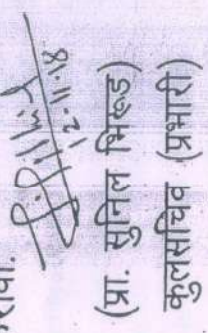 2.11.18
(प्रा. सुनिल भिरूड)
कुलसचिव (प्रभारी)